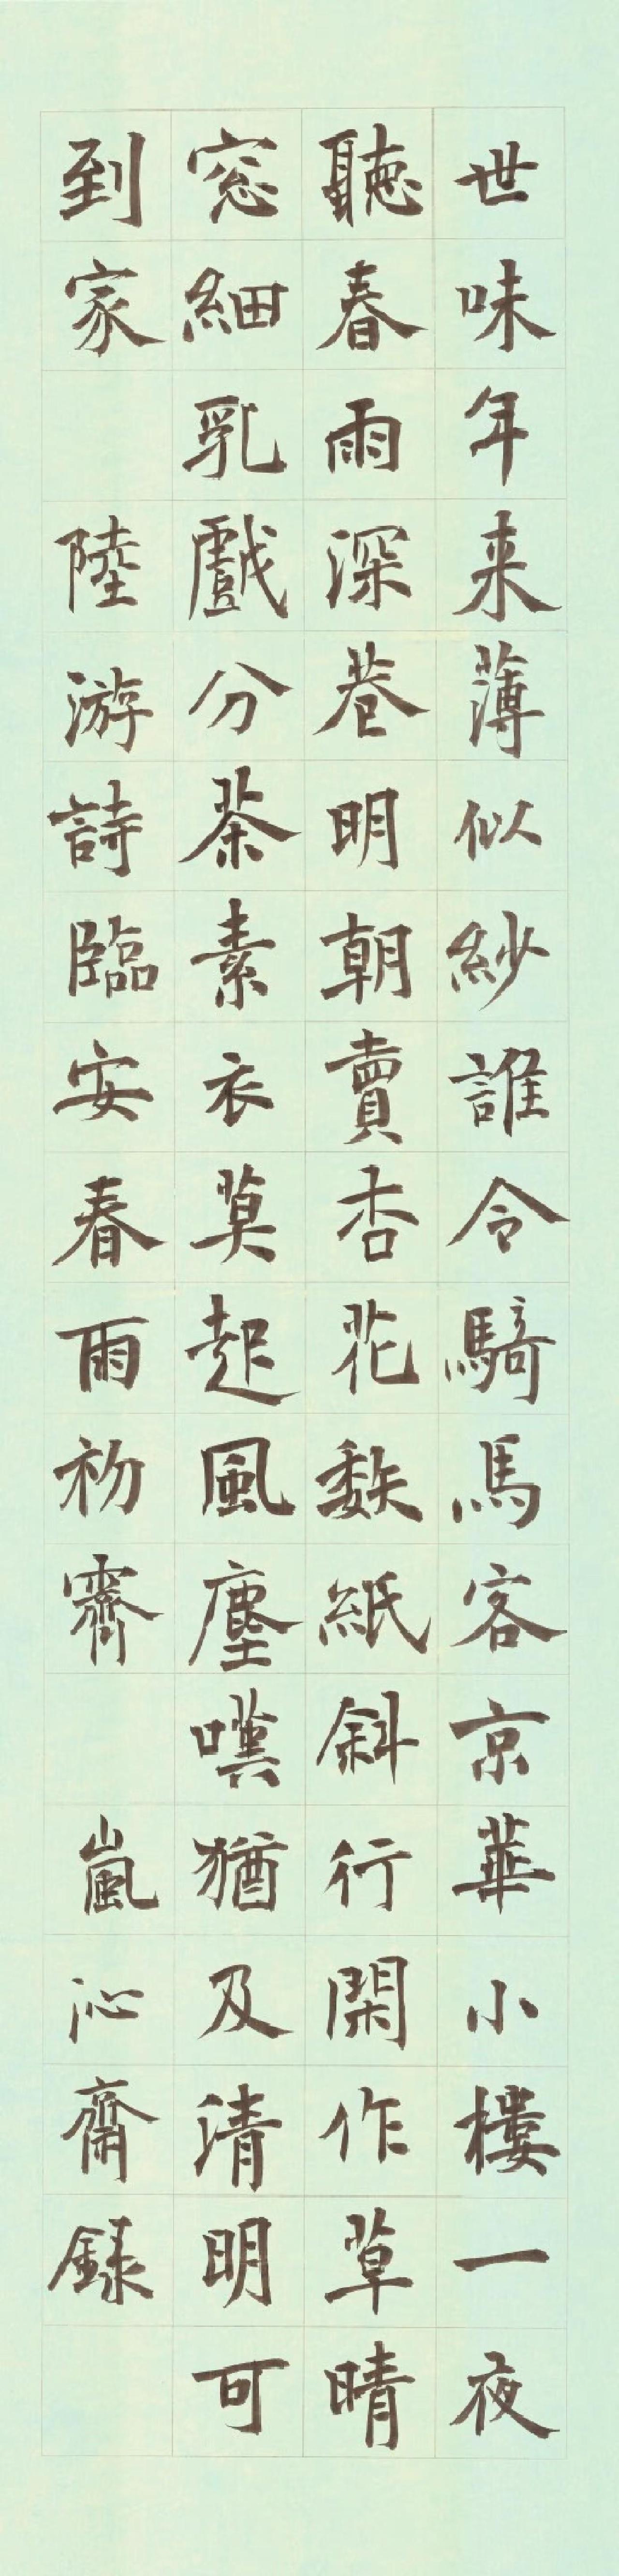 世味年来薄似紗誰令騎馬客京華小樓一夜
聽春雨深巷明朝賣杏花矮紙斜行閑作草晴
窓細乳戲分茶素衣莫起風塵嘆猶及清明可
到家 陸游詩臨安春雨初霽 嵐沁齋錄